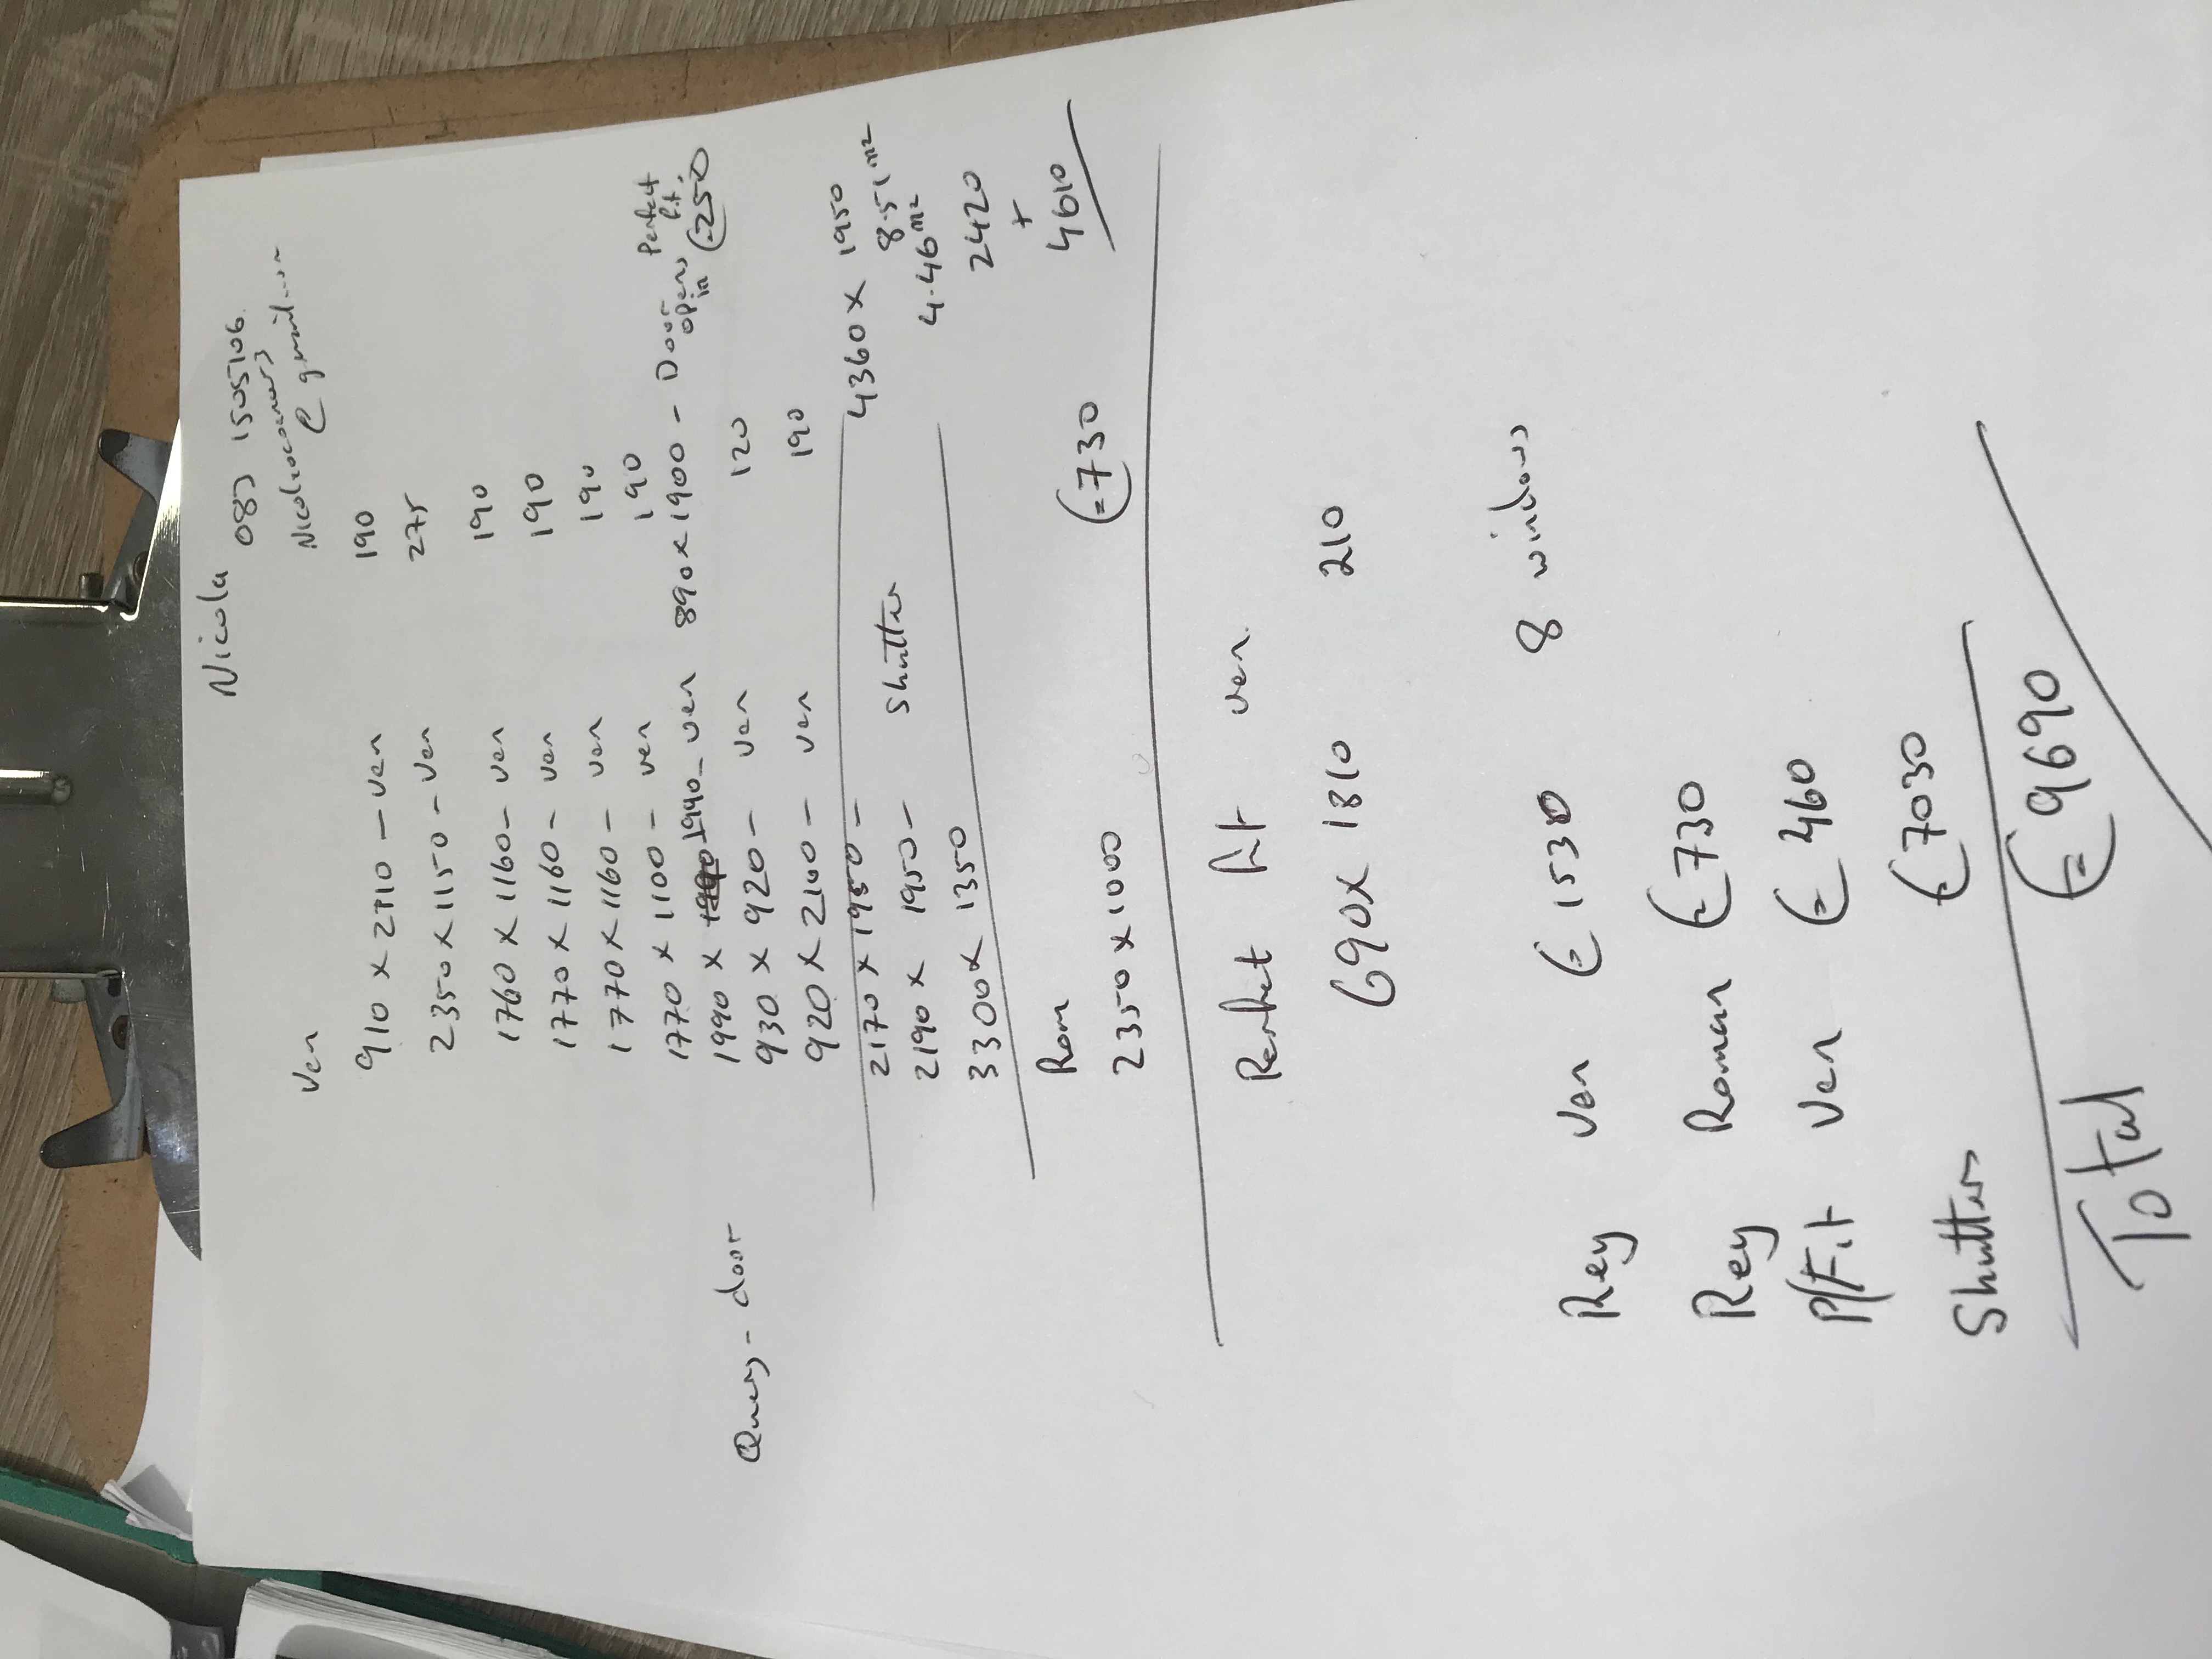 Nicola
083 1505106.
@ gmail
Ven
910 x 2710 - Ven 190
2350 x 1150 - Ven 275
1760 x 1160 - Ven 190
1770 x 1160 - Ven 190
1770 x 1160 - Ven 190
1770 x 1100 - Ven 190
Query - door 1990 x 1990 - Ven 890 x 1900 - Door opens in Perfect fit. €250
930 x 920 - Ven 120
920 x 2100 - Ven 190
2170 x 1950 - 4360 x 1950
2190 x 1950 - Shutter 8.51 m2
3300 x 1350 4.46 m2
2420
+
4610
Rom
2350 x 1000 €730
Perfect fit Ven
690 x 1810 210
Rey Ven € 1530 8 windows
Rey Roman €730
P/Fit Ven €460
Shutters €7030
Total €9690